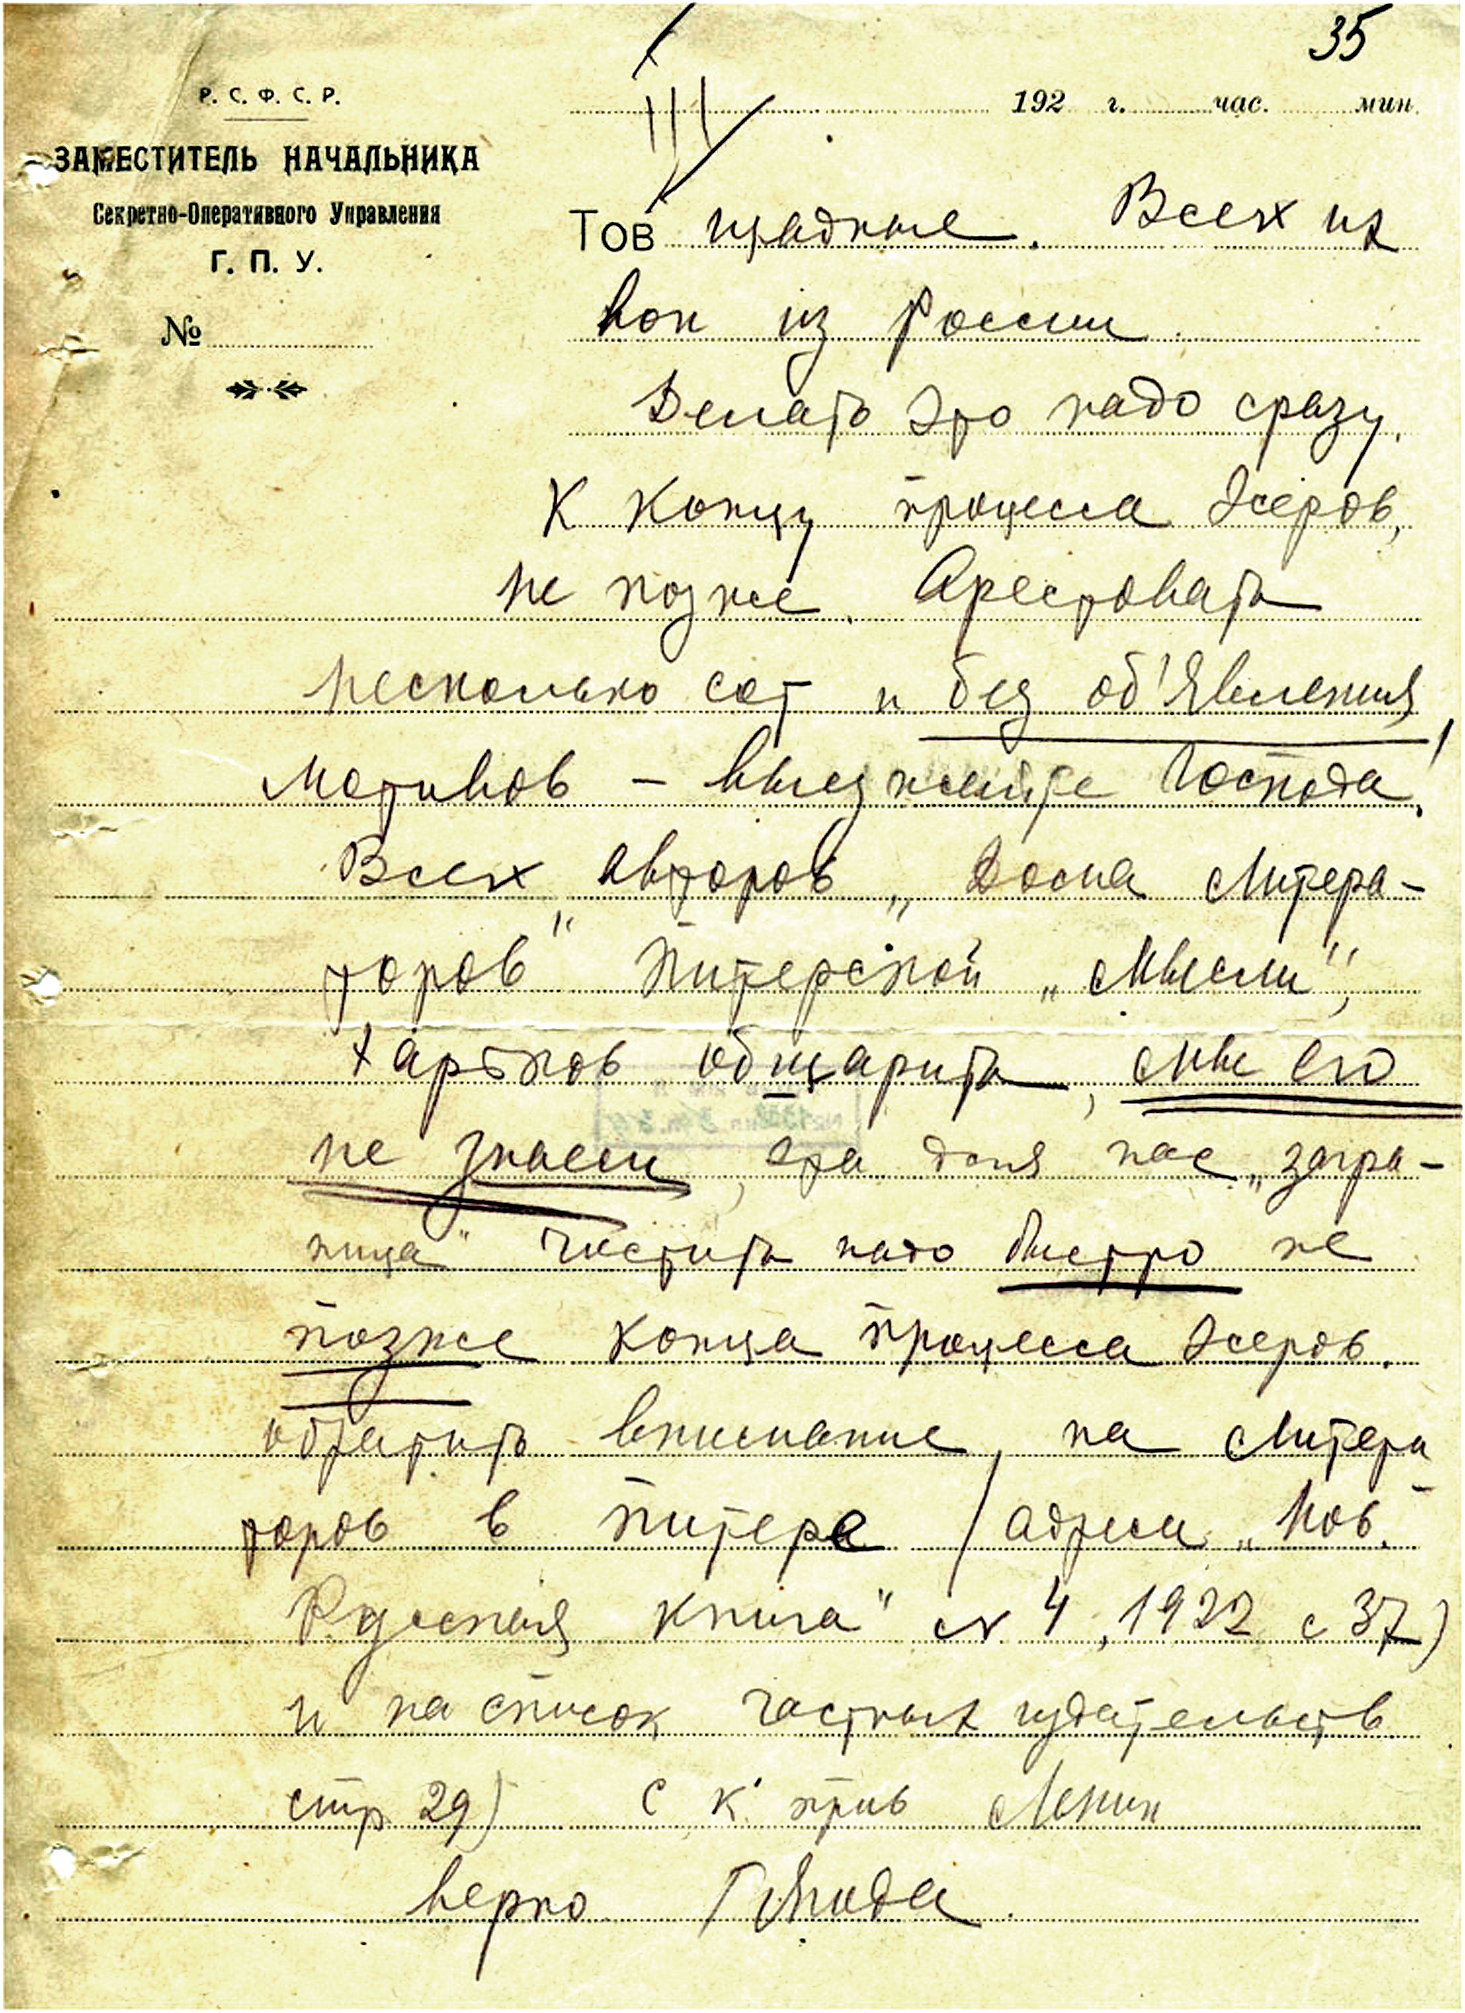 35
Р. С. Ф. С. Р.
ЗАМЕСТИТЕЛЬ НАЧАЛЬНИКА
Секретно-Оперативного Управления
Г. П. У.
№
192 г. час. мин.
Тов щадные. Всех их
вон из России.
Делать это надо сразу.
К концу процесса Эсеров,
не позже. Арестовать
несколько сот и без об'явления
мотивов – выезжайте господа!
Всех авторов „Дома Литера-
торов" Питерской „Мысли",
Харьков обшарить, мы его
не знаем, эта для нас „загра-
ница" Чистить надо быстро не
позже конца процесса Эсеров.
обратить внимание на литера
торов в Питере /адреса „Нов.
Русская книга" № 4, 1922 с 37)
и на список частных издательств
стр. 29) С к. прив Ленин
верно Г Ягода.